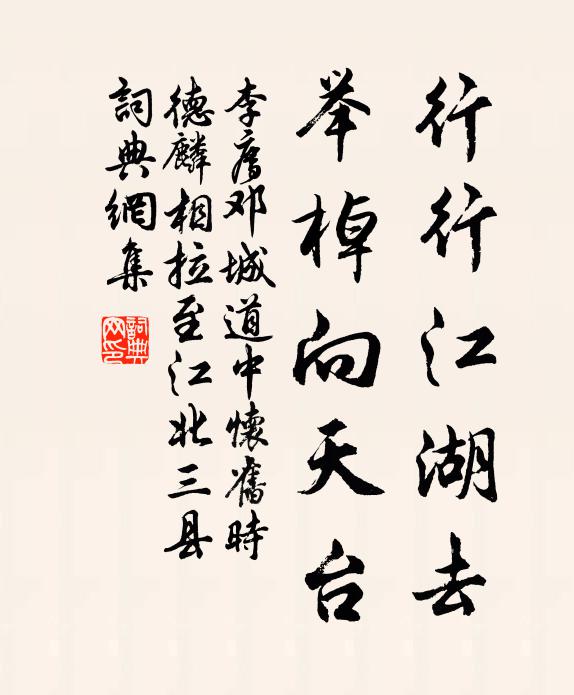 行行江湖去
举棹向天台
李廌邓城道中懷舊時
德麟相拉至江北三县
詞典網集
詞典
网印